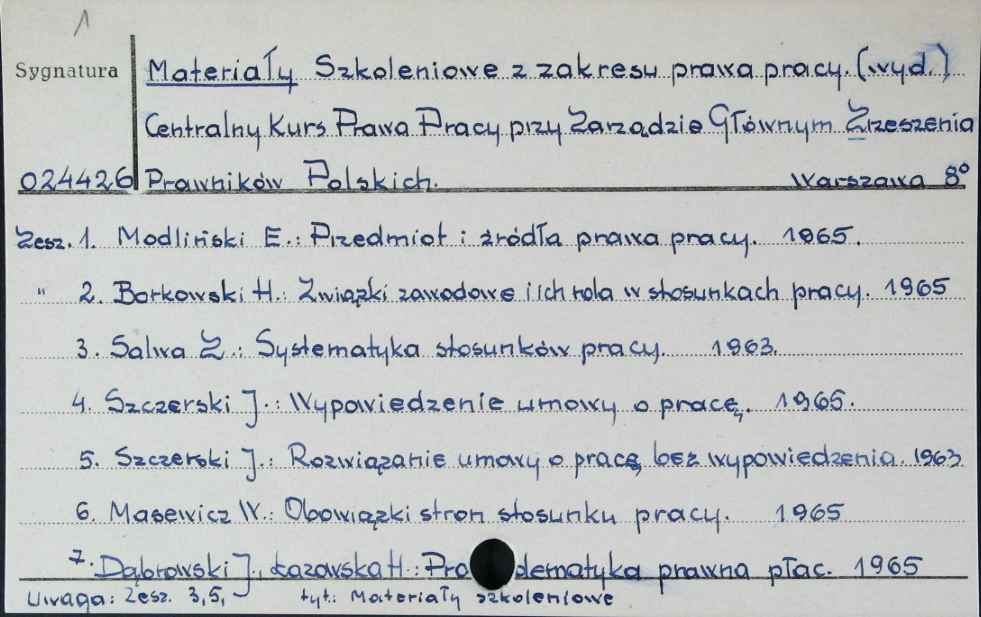 1
Sygnatura Materiały Szkoleniowe z zakresu prawa pracy. (wyd.)
Centralny Kurs Prawa Pracy przy Zarządzie Głównym Zrzeszenia
024426 Prawników Polskich. Warszawa 8°
Zesz. 1. Modliński E.: Przedmiot i źródła prawa pracy. 1965.
" 2. Borkowski H.: Związki zawodowe i ich rola w stosunkach pracy. 1965
3. Salwa Z.: Systematyka stosunków pracy. 1963.
4. Szczerski J.: Wypowiedzenie umowy o pracę. 1965.
5. Szczerski J.: Rozwiązanie umowy o pracę bez wypowiedzenia. 1963
6. Masewicz W.: Obowiązki stron stosunku pracy. 1965
7. Dąbrowski J., Łazowska H.: Problematyka prawna płac. 1965
Uwaga: Zesz. 3,5, tyt.: Materiały szkoleniowe